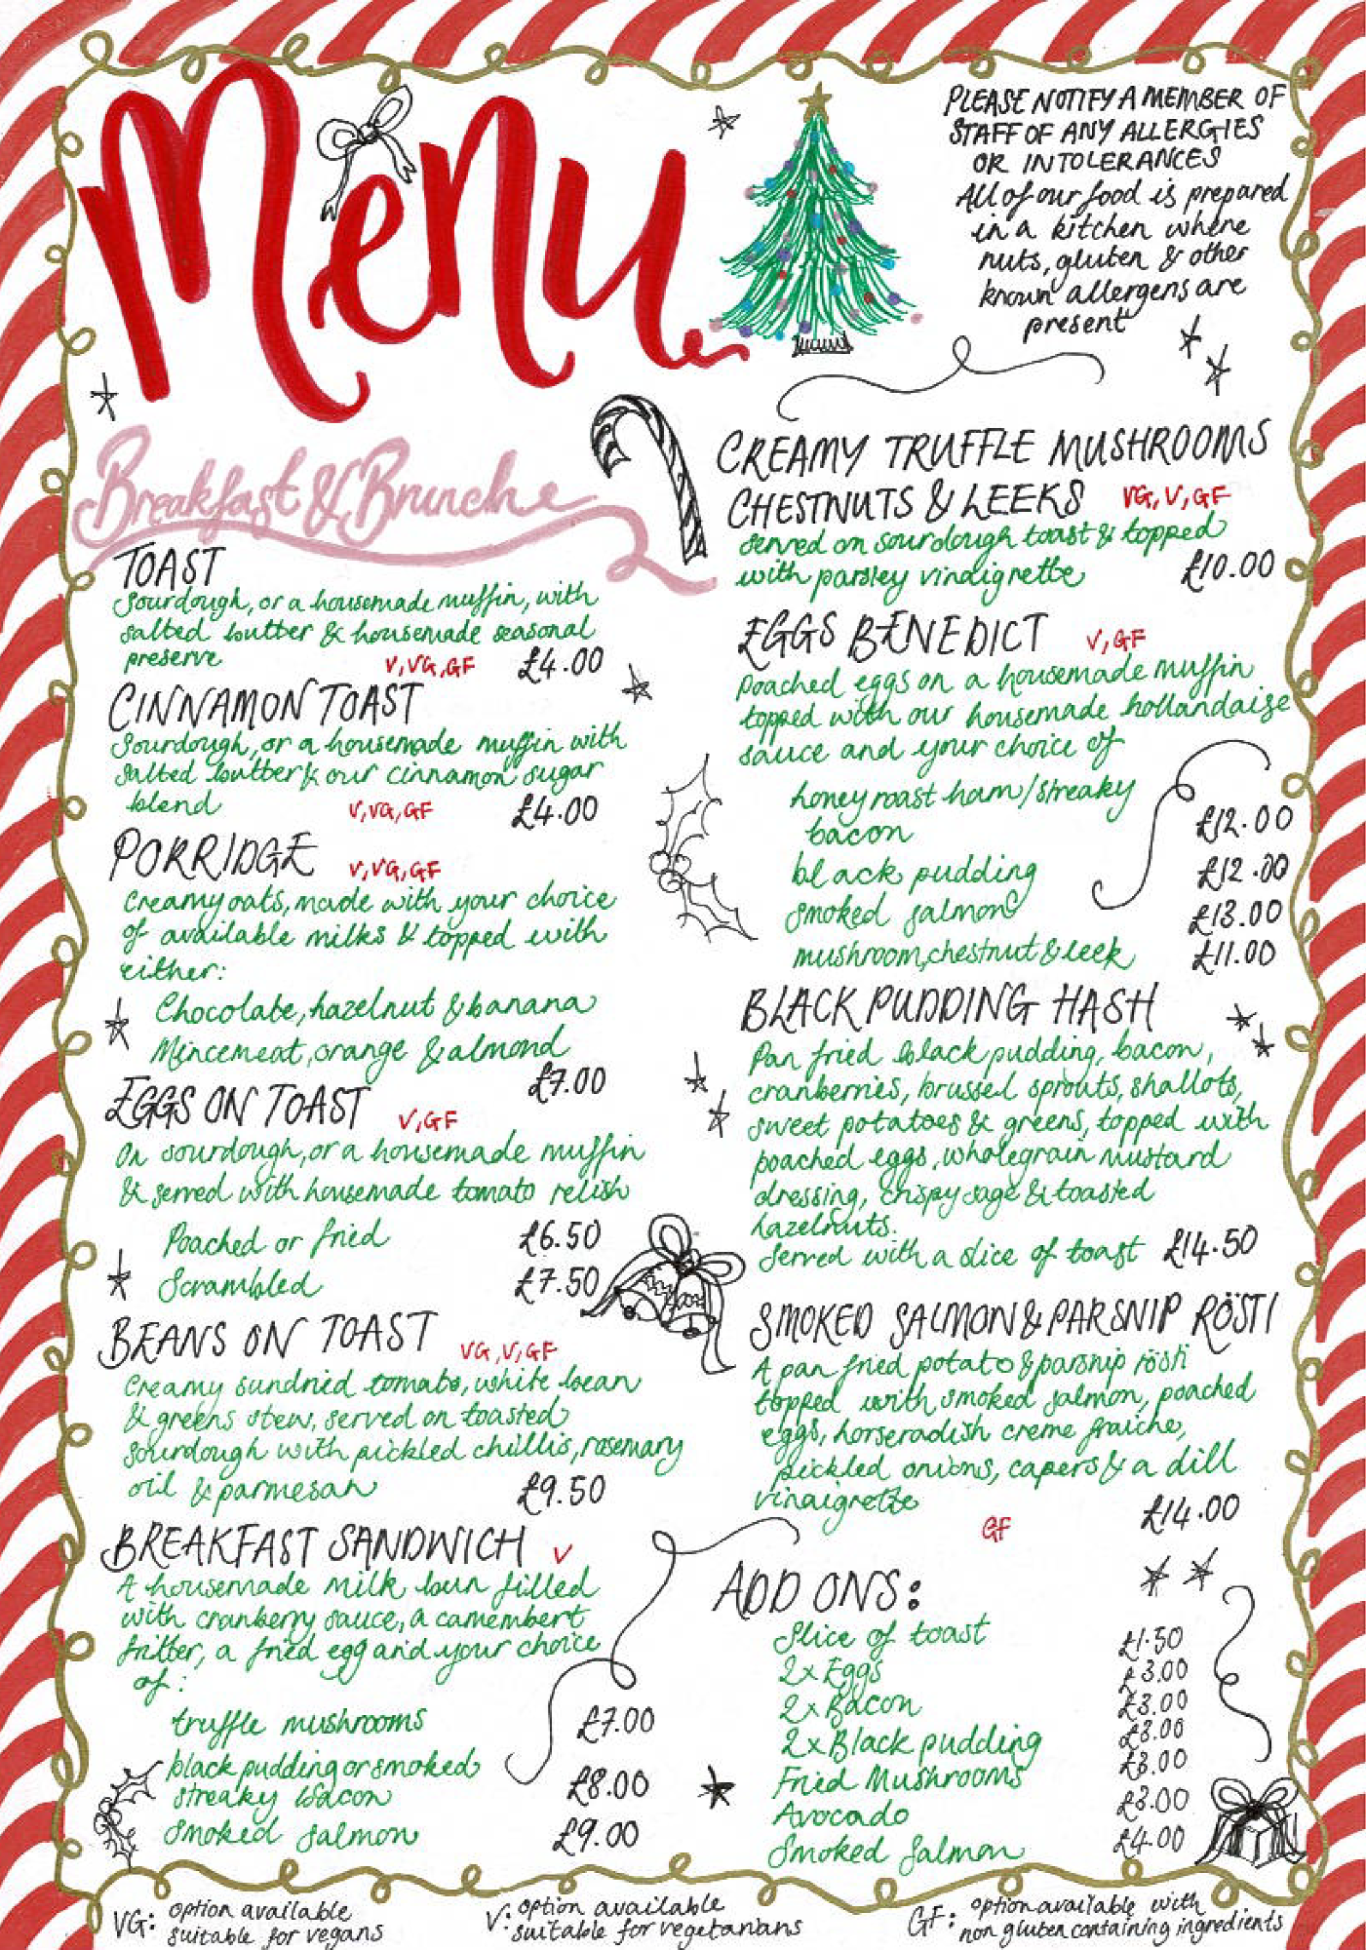 Menu
PLEASE NOTIFY A MEMBER OF
STAFF OF ANY ALLERGIES
OR INTOLERANCES
All of our food is prepared
in a kitchen where
nuts, gluten & other
known allergens are
present
Breakfast & Brunch
TOAST
Sourdough, or a housemade muffin, with
salted butter & housemade seasonal
preserve V,VG,GF £4.00
CINNAMON TOAST
Sourdough, or a housemade muffin with
salted butter & our cinnamon sugar
blend V,VG,GF £4.00
PORRIDGE V,VG,GF
Creamy oats, made with your choice
of available milks & topped with
either:
Chocolate, hazelnut & banana
Mincemeat, orange & almond
£7.00
EGGS ON TOAST V,GF
On sourdough, or a housemade muffin
& served with housemade tomato relish
Poached or fried £6.50
Scrambled £7.50
BEANS ON TOAST VG,V,GF
Creamy sundried tomato, white bean
& greens stew, served on toasted
sourdough with pickled chillis, rosemary
oil & parmesan £9.50
BREAKFAST SANDWICH V
A housemade milk bun filled
with cranberry sauce, a camembert
fritter, a fried egg and your choice
of:
truffle mushrooms £7.00
black pudding or smoked
streaky bacon £8.00
Smoked salmon £9.00
CREAMY TRUFFLE MUSHROOMS
CHESTNUTS & LEEKS VG,V,GF
Served on sourdough toast & topped
with parsley vinaigrette £10.00
EGGS BENEDICT V,GF
Poached eggs on a housemade muffin
topped with our housemade hollandaise
sauce and your choice of
honey roast ham/streaky
bacon £12.00
black pudding £12.00
smoked salmon £13.00
mushroom, chestnut & leek £11.00
BLACK PUDDING HASH
Pan fried black pudding, bacon,
cranberries, brussel sprouts, shallots,
sweet potatoes & greens, topped with
poached eggs, wholegrain mustard
dressing, crispy sage & toasted
hazelnuts.
Served with a slice of toast £14.50
SMOKED SALMON & PARSNIP RÖSTI
A pan fried potato & parsnip rösti
topped with smoked salmon, poached
eggs, horseradish creme fraiche,
pickled onions, capers & a dill
vinaigrette £14.00
GF
ADD ONS:
Slice of toast £1.50
2x Eggs £3.00
2x Bacon £3.00
2x Black pudding £3.00
Fried Mushrooms £3.00
Avocado £3.00
Smoked Salmon £4.00
VG: option available
suitable for vegans
V: option available
suitable for vegetarians
GF: option available with
non gluten containing ingredients